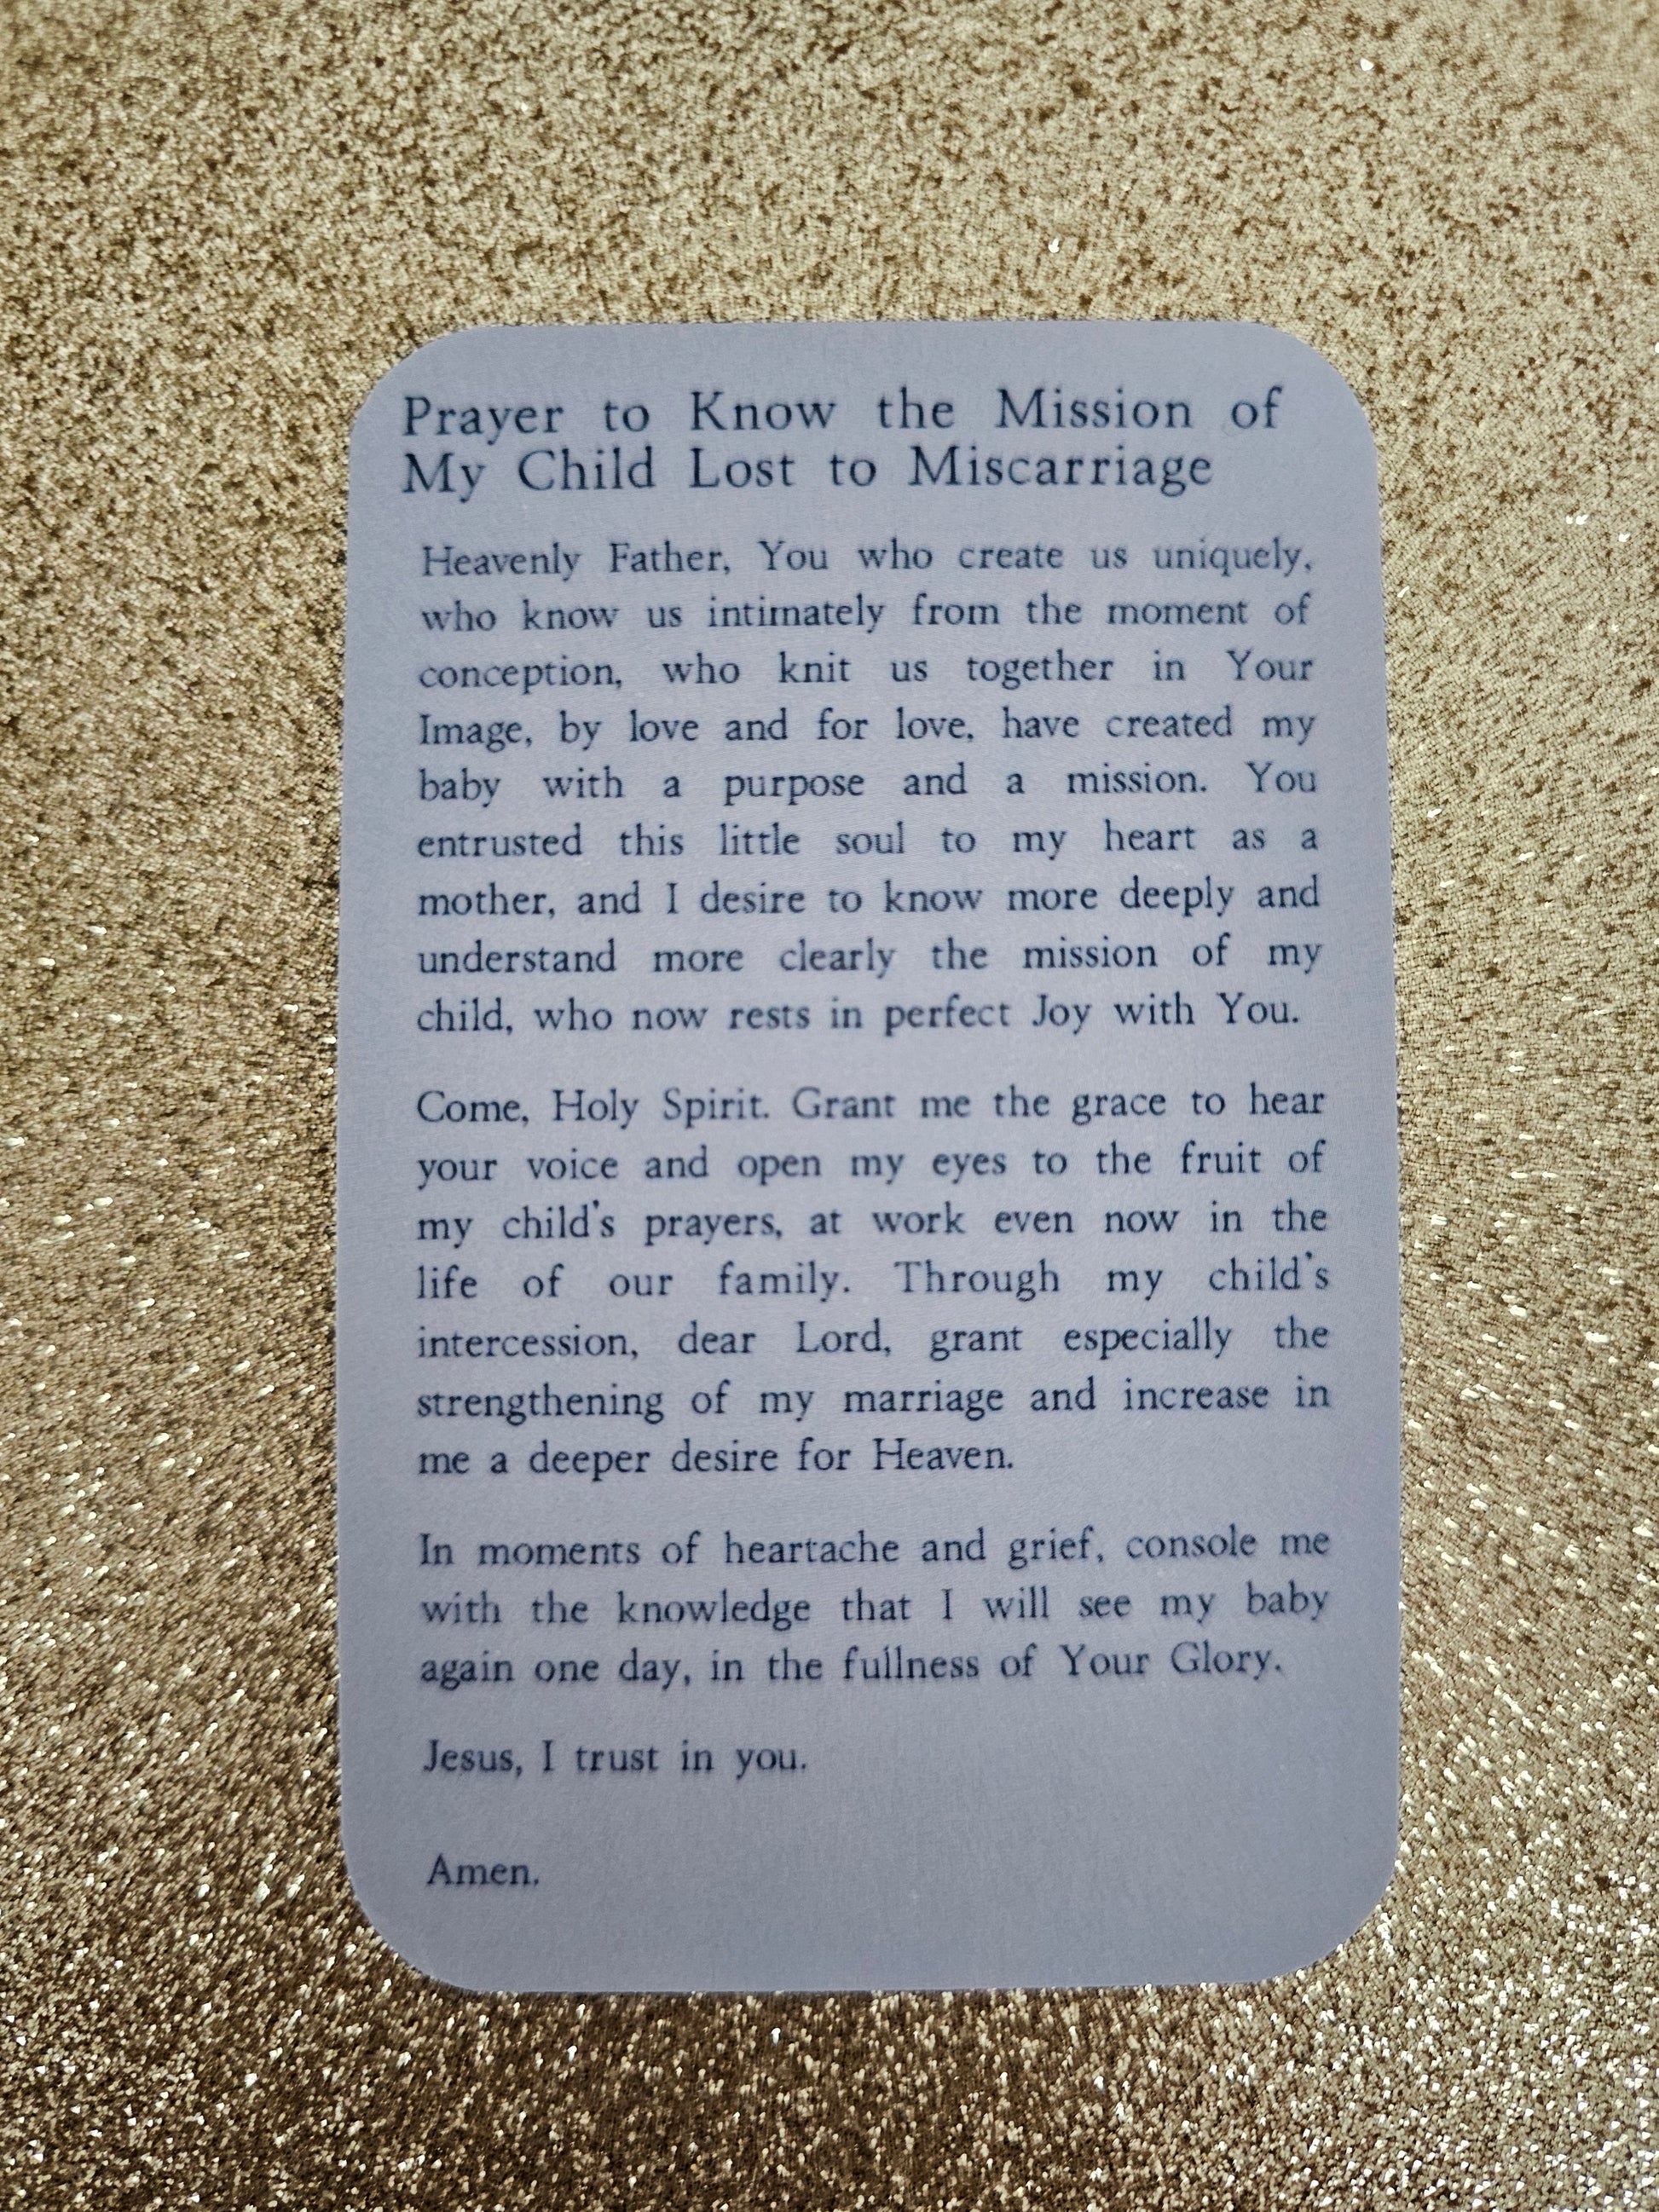 Prayer to Know the Mission of
My Child Lost to Miscarriage
Heavenly Father, You who create us uniquely,
who know us intimately from the moment of
conception, who knit us together in Your
Image, by love and for love, have created my
baby with a purpose and a mission. You
entrusted this little soul to my heart as a
mother, and I desire to know more deeply and
understand more clearly the mission of my
child, who now rests in perfect Joy with You.
Come, Holy Spirit. Grant me the grace to hear
your voice and open my eyes to the fruit of
my child's prayers, at work even now in the
life of our family. Through my child's
intercession, dear Lord, grant especially the
strengthening of my marriage and increase in
me a deeper desire for Heaven.
In moments of heartache and grief, console me
with the knowledge that I will see my baby
again one day, in the fullness of Your Glory.
Jesus, I trust in you.
Amen.